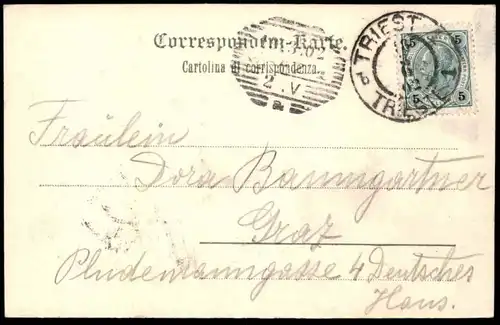 Correspondenz-Karte.
Cartolina di corrispondenza.
TRIEST
TRIEST
5 5
5 5
2 . V
Fräulein
Dora Baumgartner
Graz
4 Deutsches
Haus.